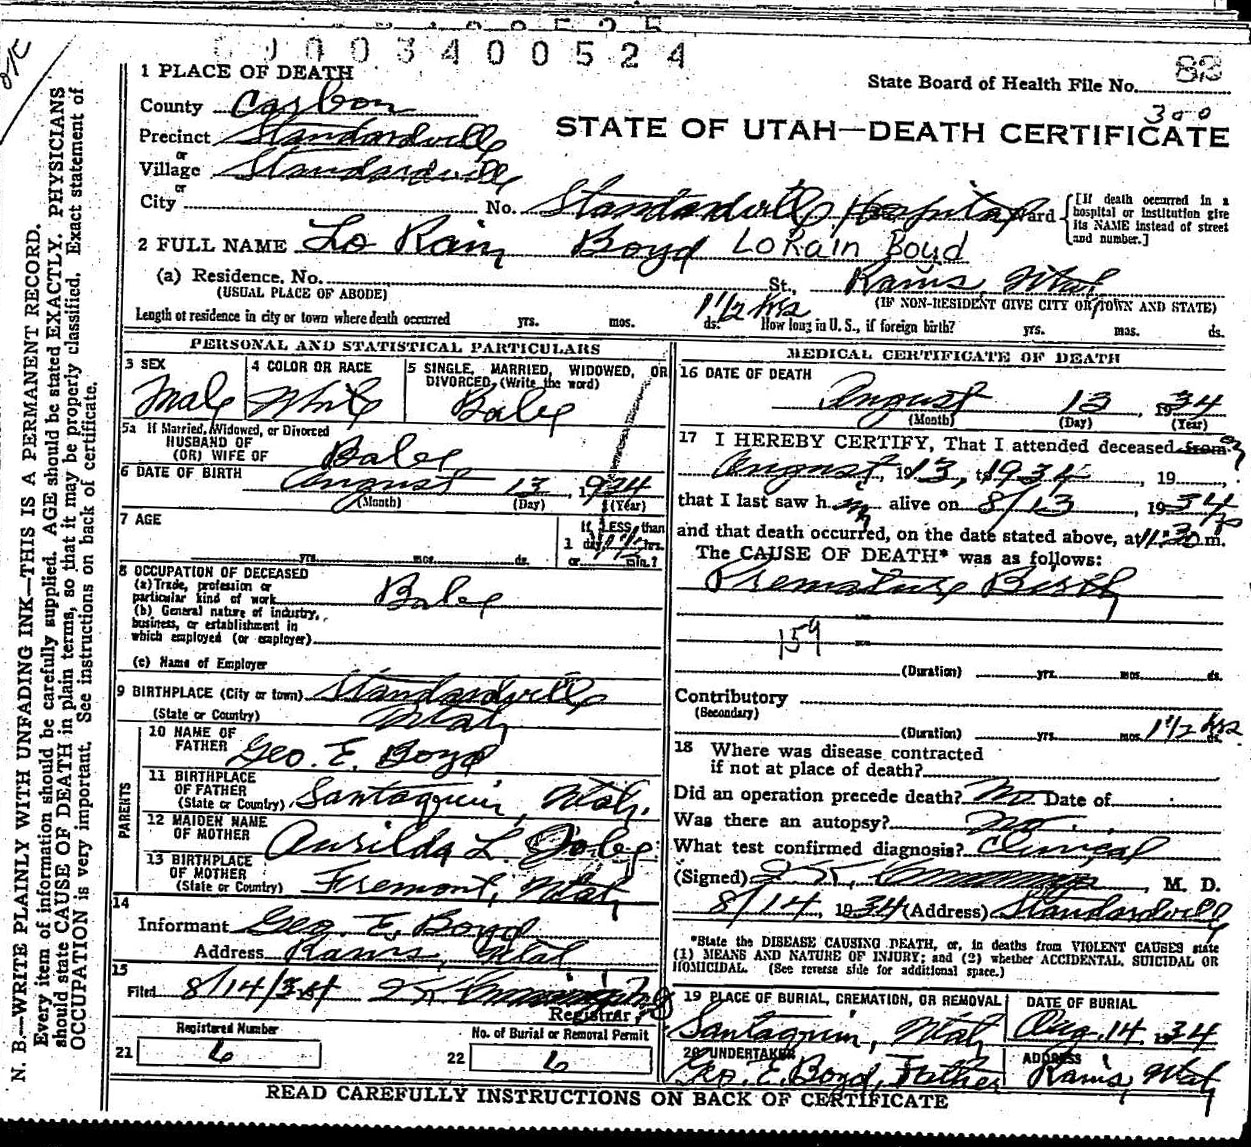 0003400524
1 PLACE OF DEATH
State Board of Health File No. 83
County Carbon
300
Precinct Standardville
STATE OF UTAH—DEATH CERTIFICATE
or
Village Standardville
or
City No. Standardville Hospital Ward
[If death occurred in a hospital or institution give its NAME instead of street and number.]
2 FULL NAME Lo Rain Boyd LoRain Boyd
(a) Residence, No. St., Rains, Utah
(USUAL PLACE OF ABODE) (IF NON-RESIDENT GIVE CITY OR TOWN AND STATE)
Length of residence in city or town where death occurred yrs. mos. 1 1/2 hrs ds. How long in U. S., if foreign birth? yrs. mos. ds.
PERSONAL AND STATISTICAL PARTICULARS
3 SEX
Male
4 COLOR OR RACE
White
5 SINGLE, MARRIED, WIDOWED, OR
DIVORCED, (Write the word)
Babe
5a If Married, Widowed, or Divorced
HUSBAND OF
(OR) WIFE OF Babe
6 DATE OF BIRTH August 13, 1934
(Month) (Day) (Year)
7 AGE
If LESS than
1 day 1 1/2 hrs.
yrs. mos. ds. or min.?
8 OCCUPATION OF DECEASED
(a) Trade, profession or
particular kind of work Babe
(b) General nature of industry,
business, or establishment in
which employed (or employer)
(c) Name of Employer
9 BIRTHPLACE (City or town) Standardville
(State or Country) Utah
PARENTS
10 NAME OF
FATHER Geo. E. Boyd
11 BIRTHPLACE
OF FATHER
(State or Country) Santaquin, Utah.
12 MAIDEN NAME
OF MOTHER Aurilda L.
13 BIRTHPLACE
OF MOTHER
(State or Country) Fremont, Utah
14
Informant Geo. E. Boyd
Address Rains, Utah
15
Filed 8/14/34
Registrar
Registered Number
21 6
No. of Burial or Removal Permit
22 6
MEDICAL CERTIFICATE OF DEATH
16 DATE OF DEATH
August 13, 1934
(Month) (Day) (Year)
17 I HEREBY CERTIFY, That I attended deceased from on
August 1913, t1934, 19
that I last saw h m alive on 8/13, 1934
and that death occurred, on the date stated above, at 11:30 p m.
The CAUSE OF DEATH* was as follows:
Premature Birth
159
(Duration) yrs. mos. ds.
Contributory
(Secondary)
(Duration) yrs. mos. 1 1/2 hrs ds.
18 Where was disease contracted
if not at place of death?
Did an operation precede death? No Date of
Was there an autopsy? no
What test confirmed diagnosis? Clinical
(Signed) , M. D.
8/14, 1934 (Address) Standardville
*State the DISEASE CAUSING DEATH, or, in deaths from VIOLENT CAUSES state
(1) MEANS AND NATURE OF INJURY; and (2) whether ACCIDENTAL, SUICIDAL OR
HOMICIDAL. (See reverse side for additional space.)
19 PLACE OF BURIAL, CREMATION, OR REMOVAL
Santaquin, Utah
DATE OF BURIAL
Aug. 14 1934
20 UNDERTAKER
Geo. E. Boyd, Father
ADDRESS
Rains, Utah
READ CAREFULLY INSTRUCTIONS ON BACK OF CERTIFICATE
N. B.—WRITE PLAINLY WITH UNFADING INK—THIS IS A PERMANENT RECORD.
Every item of information should be carefully supplied. AGE should be stated EXACTLY. PHYSICIANS
should state CAUSE OF DEATH in plain terms, so that it may be properly classified. Exact statement of
OCCUPATION is very important. See instructions on back of certificate.